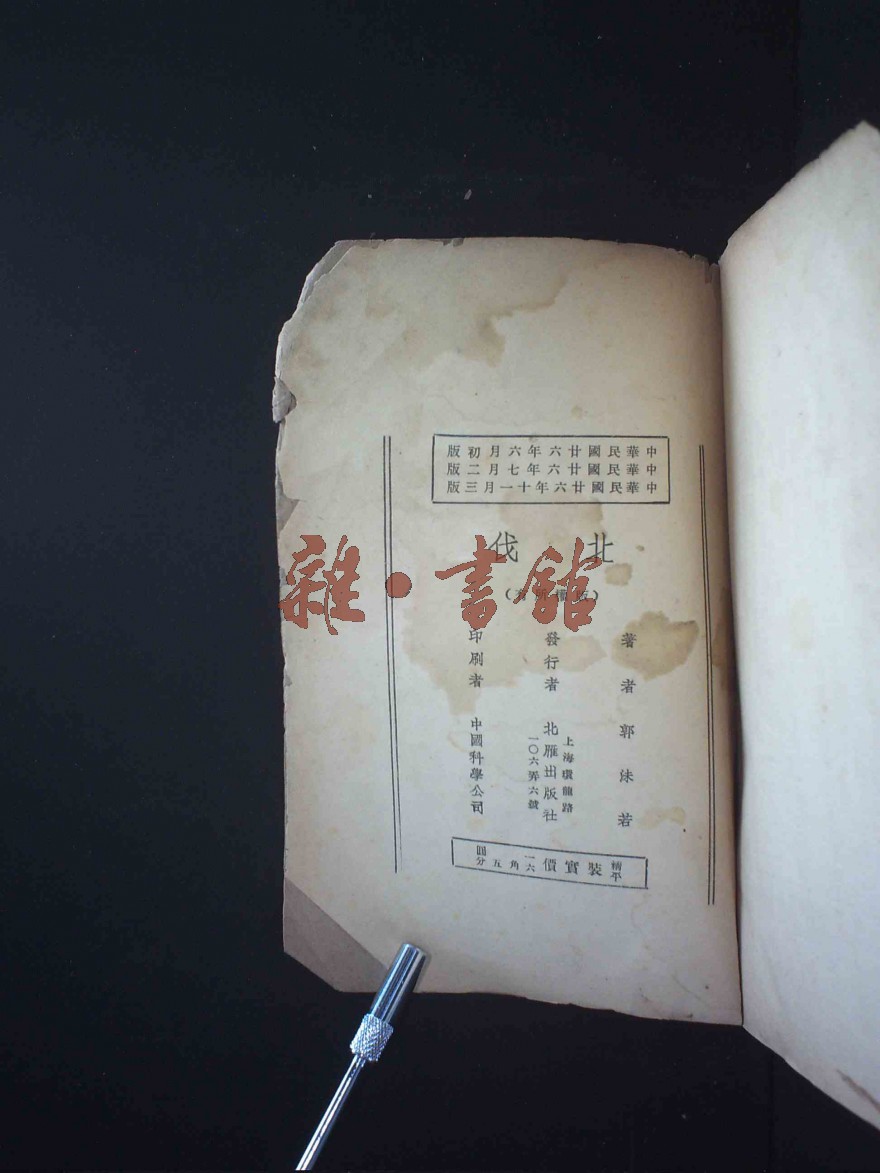 中華民國廿六年六月初版
中華民國廿六年七月二版
中華民國廿六年十一月三版
北伐
著者 郭沫若
發行者 北雁出版社
上海環龍路
一〇六弄六號
印刷者 中國科學公司
精平裝實價一六角五圓分
雜·書館